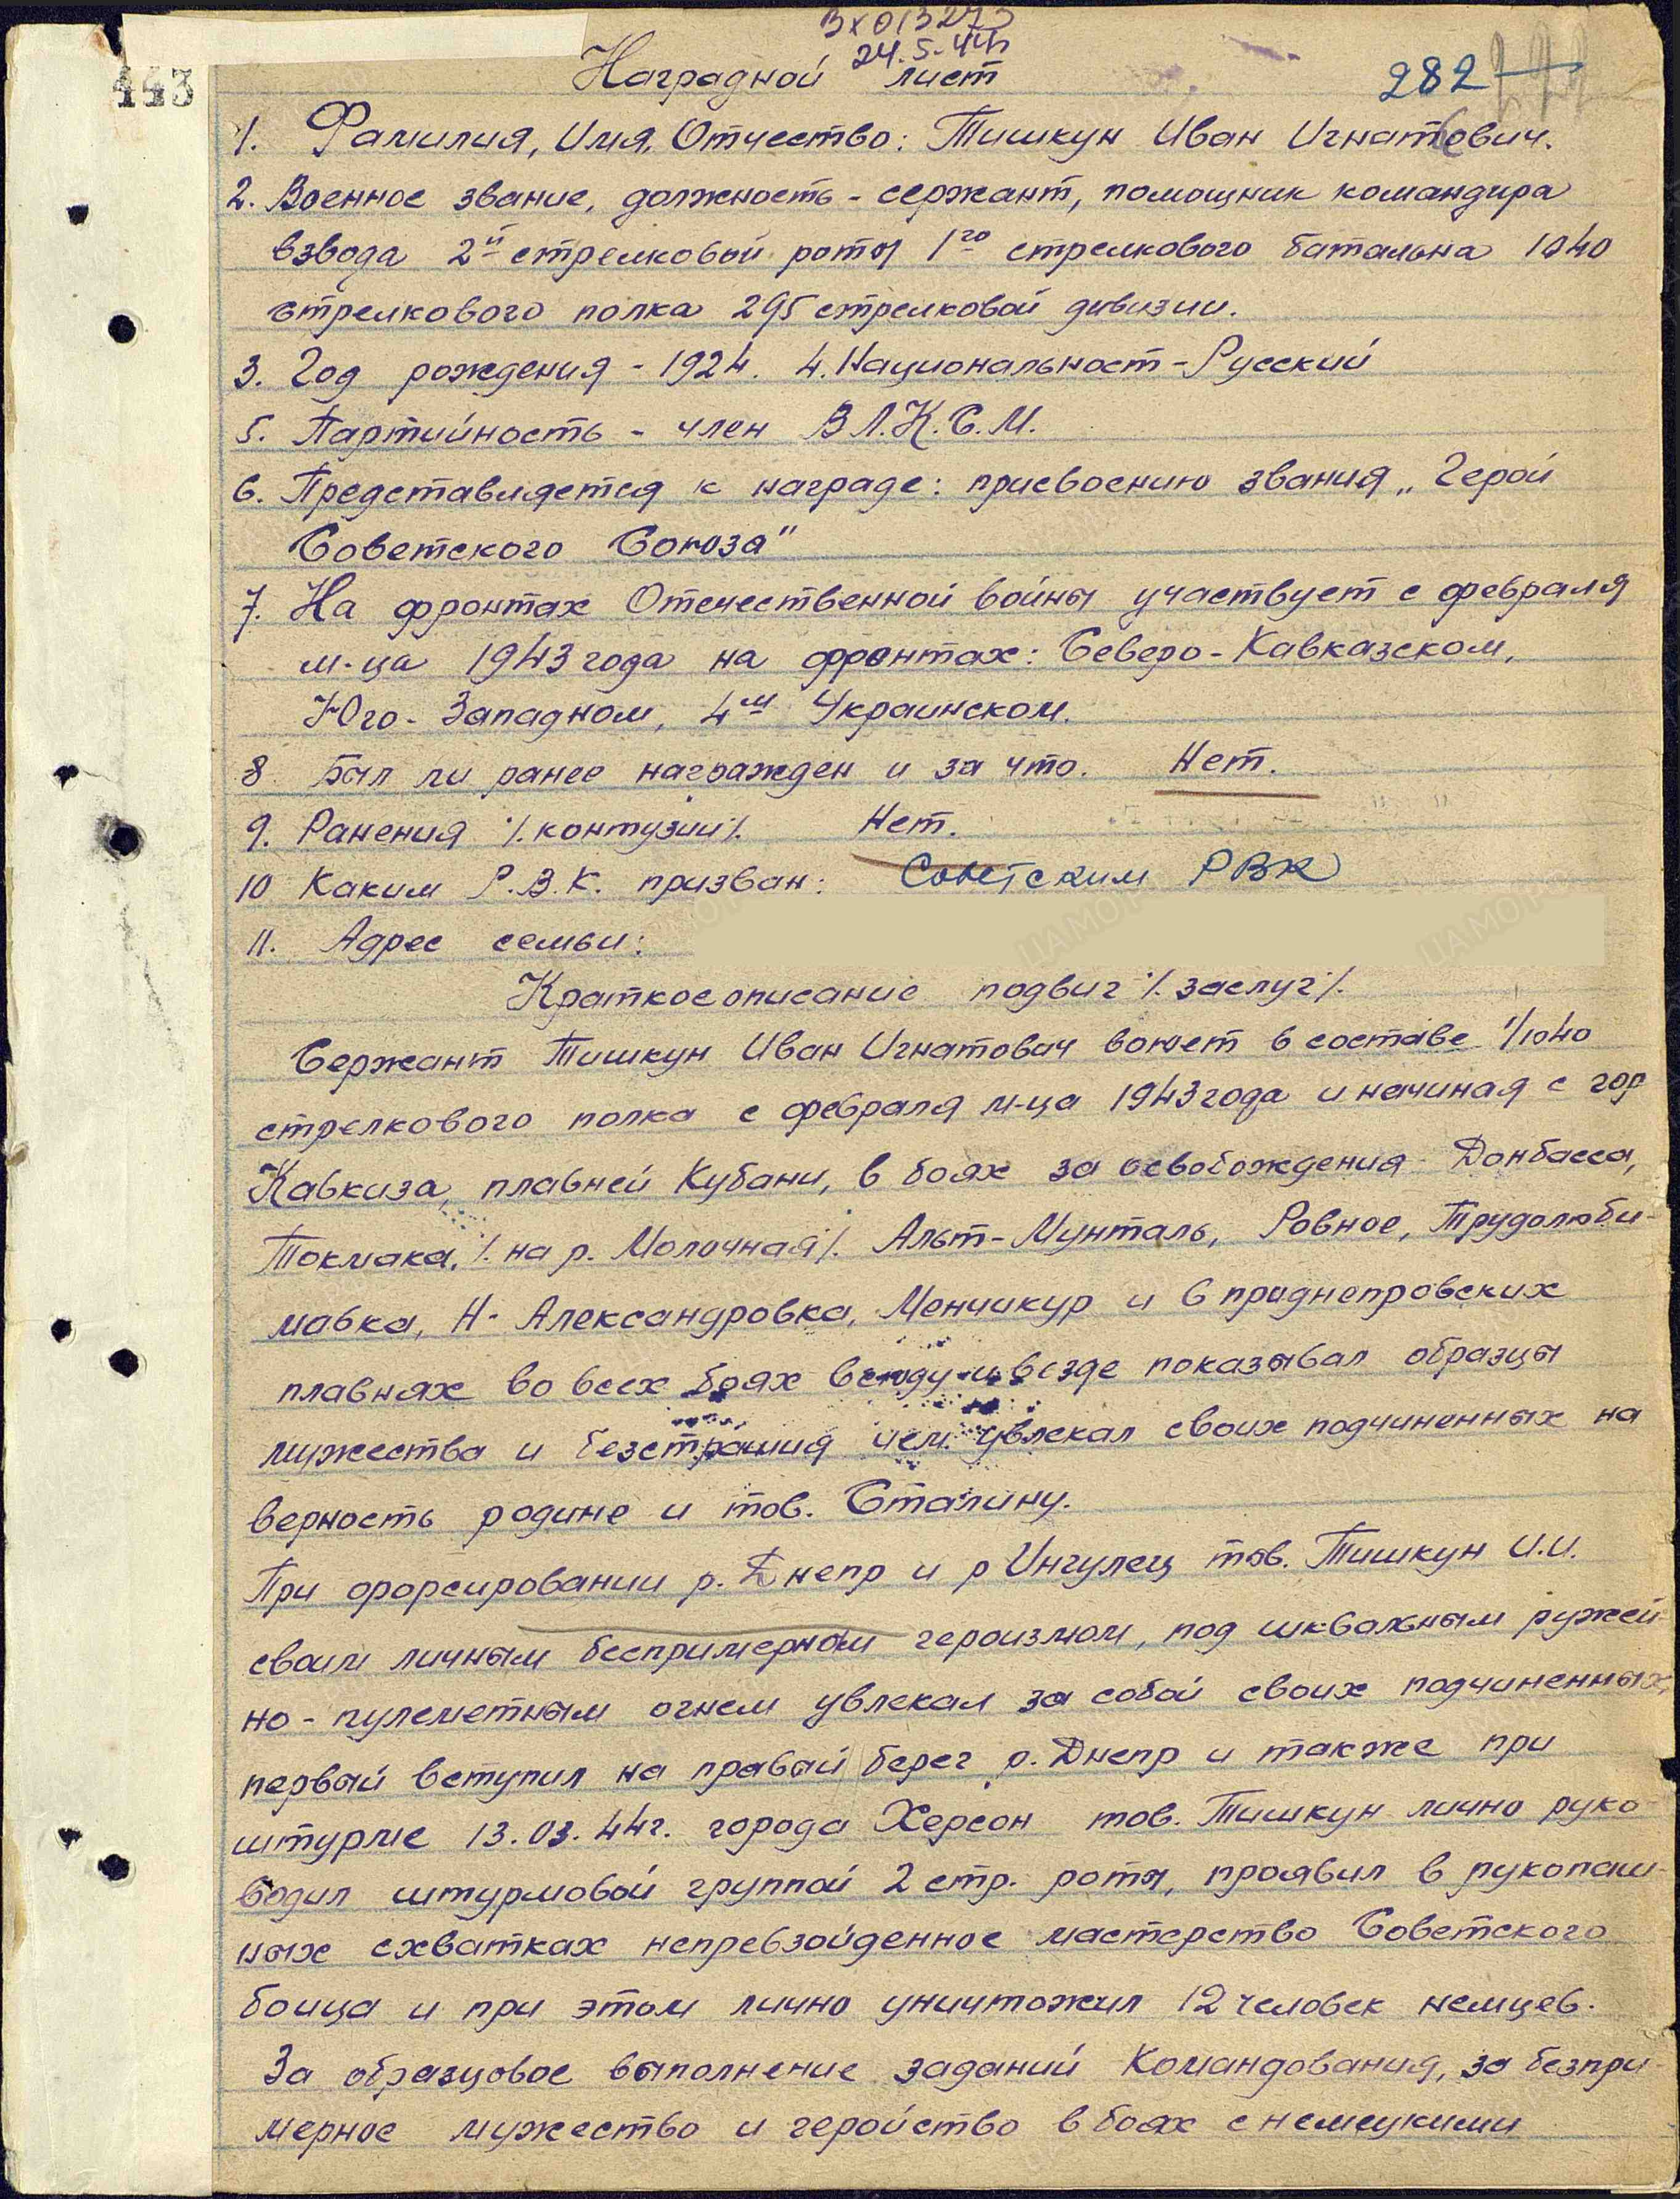 Вх 013273
24.5-44г
Наградной лист
282
443
1. Фамилия, Имя, Отчество: Тишкун Иван Игнатович.
2. Военное звание, должность - сержант, помощник командира
взвода 2й стрелковой роты 1го стрелкового батальна 1040
стрелкового полка 295 стрелковой дивизии.
3. Год рождения - 1924. 4. Националность - Русский
5. Партийность - член В.Л.К.С.М.
6. Представляется к награде: присвоению звания „Герой
Советского Союза"
7. На фронтах Отечественной войны участвует с февраля
м-ца 1943 года на фронтах: Северо-Кавказском,
Юго-Западном, 4м Украинском.
8 Был ли ранее награжден и за что. Нет.
9. Ранения ./.контузии/. Нет.
10 Каким Р.В.К. призван: Советским РВК
11. Адрес семьи:
Краткое описание подвиг ./.заслуг/.
Сержант Тишкун Иван Игнатович воюет в составе 1/1040
стрелкового полка с февраля м-ца 1943 года и начиная с гор
Кавкиза, плавней Кубани, в боях за освобождения Донбасса,
Токмака, ./.на р. Молочная/. Альт-Мунталь, Ровное, Трудолюби-
мовка, Н-Александровка, Менчикур и в приднепровских
плавнях во всех боях всюду и везде показывал образцы
мужества и безстрашия чем увлекал своих подчиненных на
верность родине и тов. Сталину.
При форсировании р. Днепр и р Ингулец тов. Тишкун И.И.
своим личным беспримерном героизмом, под шквальным ружей-
но-пулеметным огнем увлекал за собой своих подчиненных,
первый вступил на правый берег р. Днепр и также при
штурме 13.03.44г. города Херсон тов. Тишкун лично руко-
водил штурмовой группой 2 стр. роты, проявил в рукопаш-
ных схватках непревзойденное мастерство Советского
боица и при этом лично уничтожил 12 человек немцев.
За образцовое выполнение заданий Командования, за безпри-
мерное мужество и геройство в боях с немецкими